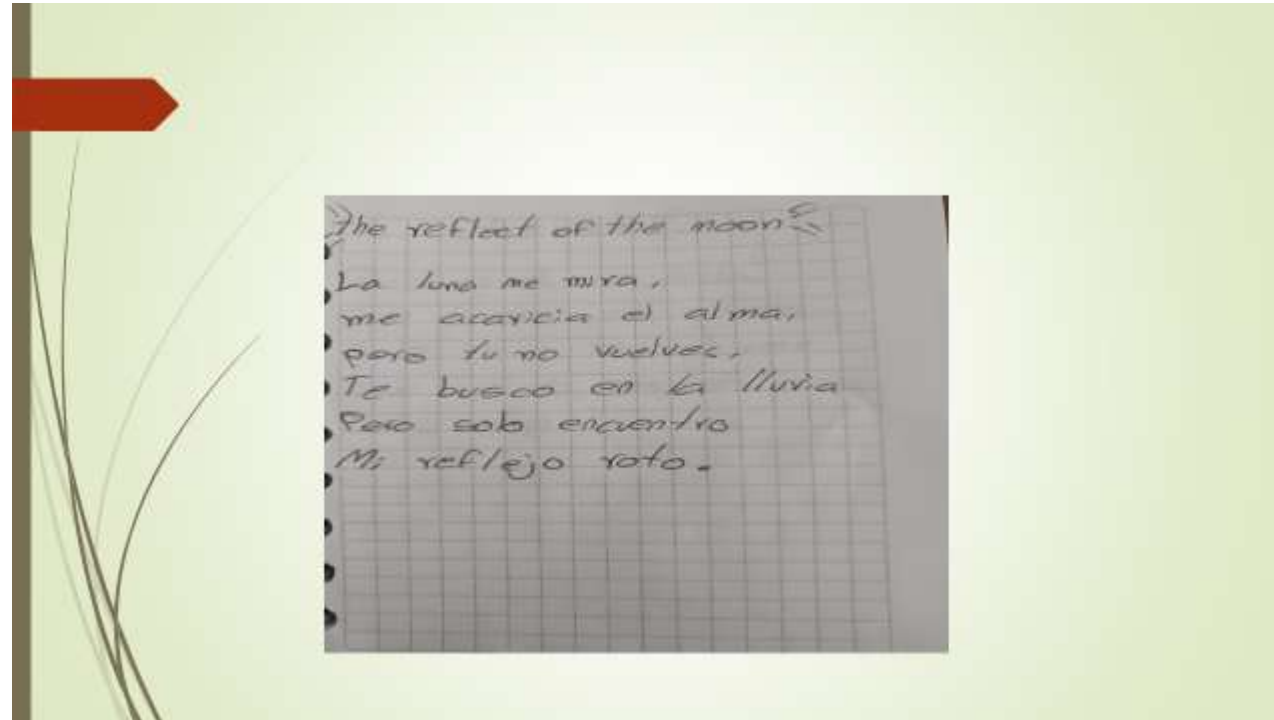 The reflect of the moon
La luna me mira,
me acaricia el alma,
pero tu no vuelves,
Te busco en la lluvia
Pero solo encuentro
Mi reflejo roto.